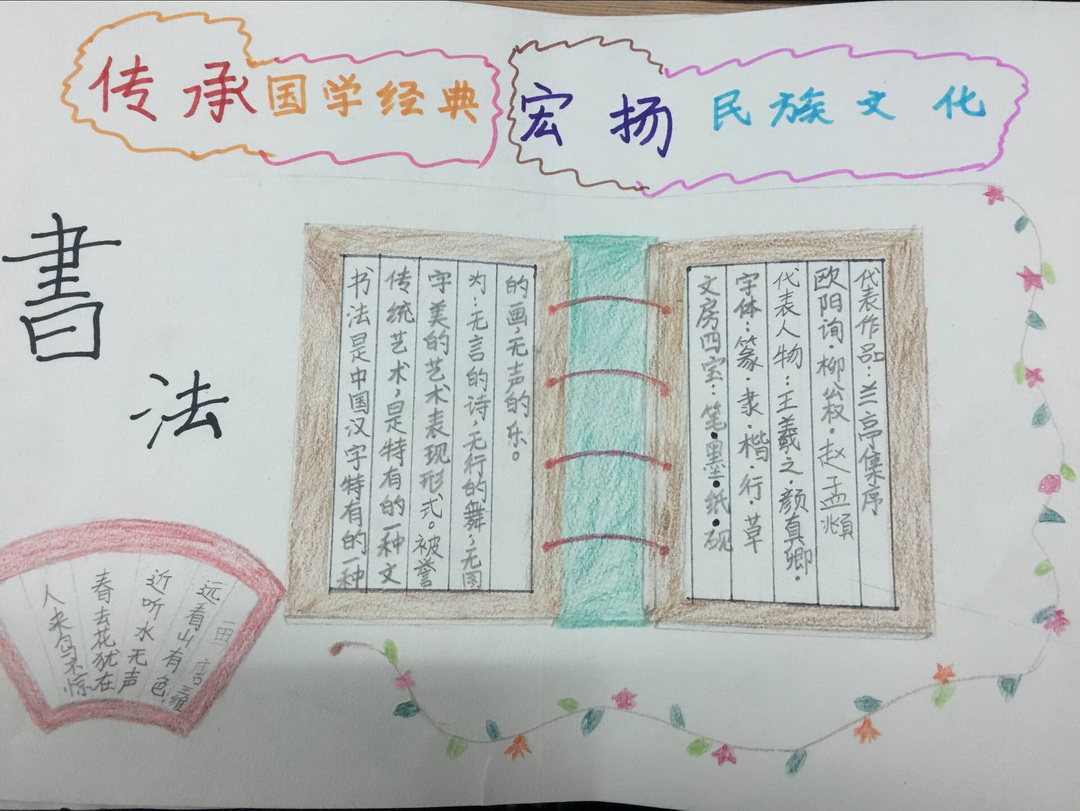 传承国学经典
宏扬民族文化
書法
书法是中国汉字特有的一种
传统艺术,是特有的一种文
字美的艺术表现形式。被誉
为:无言的诗,无行的舞;无图
的画,无声的乐。
文房四宝:笔·墨·纸·砚
字体:篆·隶·楷·行·草
代表人物:王羲之·颜真卿·
欧阳询·柳公权·赵孟頫
代表作品:兰亭集序
画
远看山有色
近听水无声
春去花犹在
人来鸟不惊